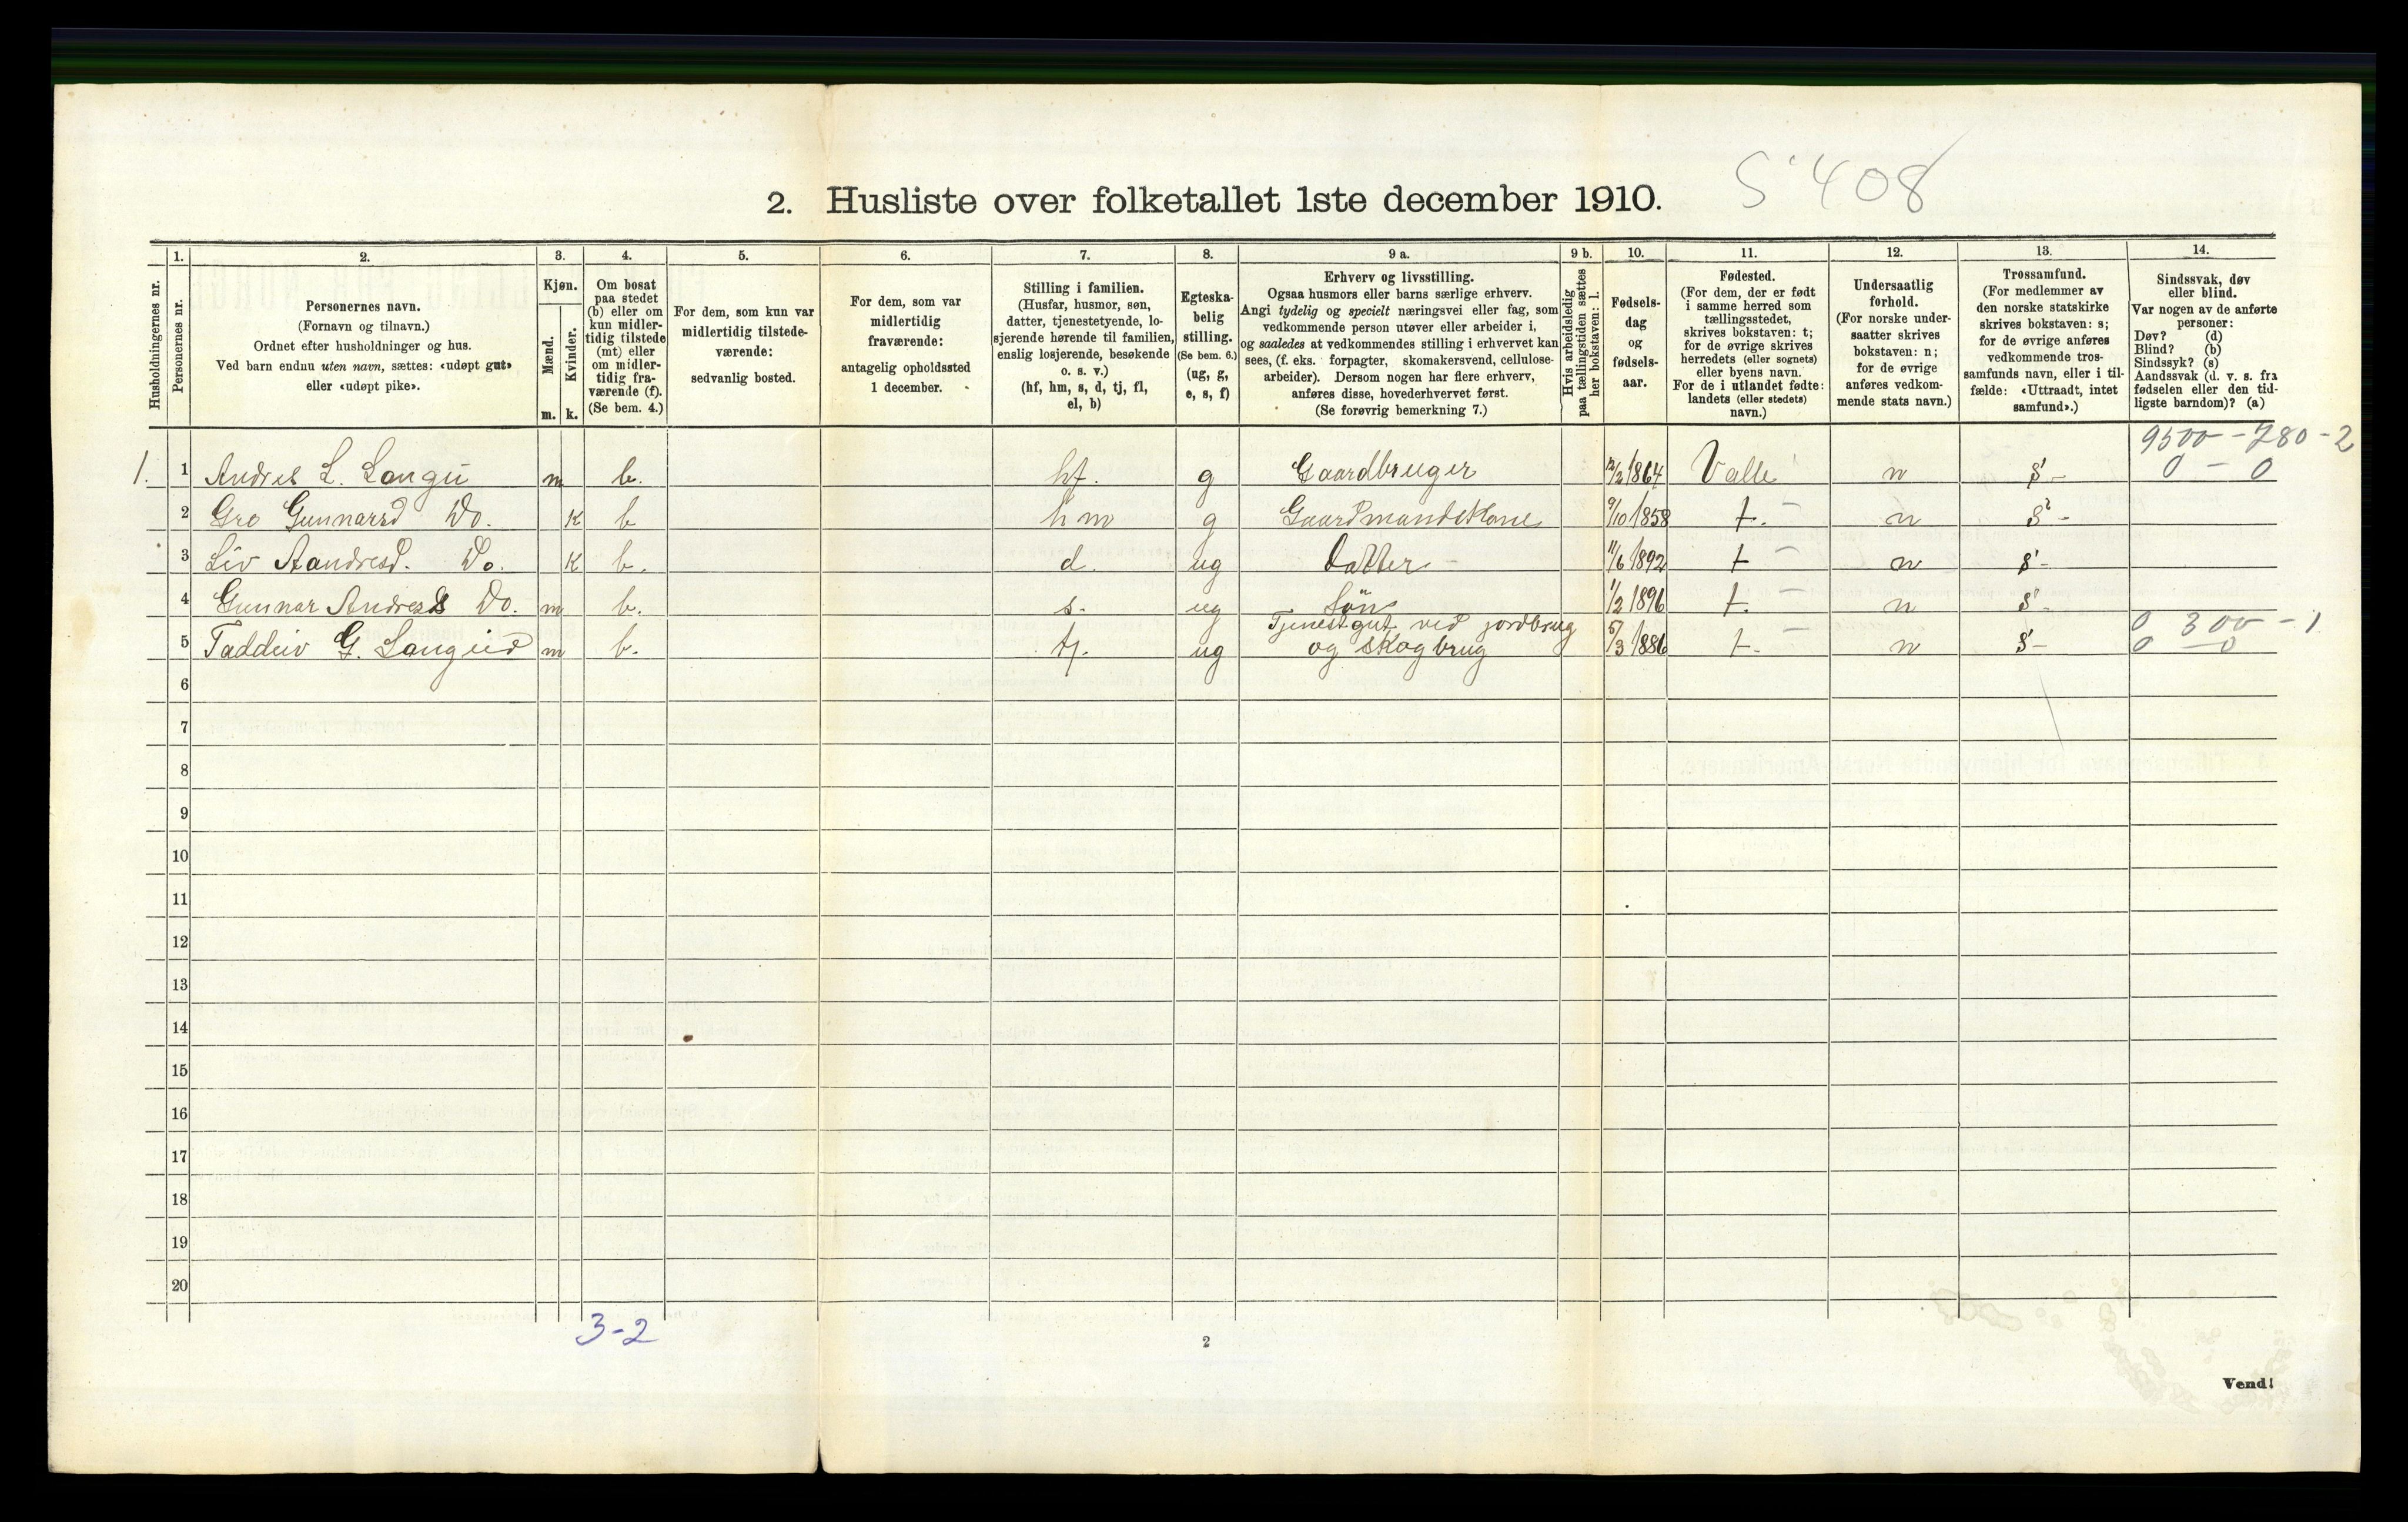 S 408
2. Husliste over folketallet 1ste december 1910.
Husholdningernes nr.
1.
Personernes nr.
2.
Personernes navn.
(Fornavn og tilnavn.)
Ordnet efter husholdninger og hus.
Ved barn endnu uten navn, sættes: «udøpt gut»
eller «udøpt pike».
3.
Kjøn.
Mænd.
Kvinder.
m.
k.
4.
Om bosat
paa stedet
(b) eller om
kun midler-
tidig tilstede
(mt) eller
om midler-
tidig fra-
værende (f).
(Se bem. 4.)
5.
For dem, som kun var
midlertidig tilstede-
værende:
sedvanlig bosted.
6.
For dem, som var
midlertidig
fraværende:
antagelig opholdssted
1 december.
7.
Stilling i familien.
(Husfar, husmor, søn,
datter, tjenestetyende, lo-
sjerende hørende til familien,
enslig losjerende, besøkende
o. s. v.)
(hf, hm, s, d, tj, fl,
el, b)
8.
Egteska-
belig
stilling.
(Se bem. 6.)
(ug, g,
e, s, f)
9 a.
Erhverv og livsstilling.
Ogsaa husmors eller barns særlige erhverv.
Angi tydelig og specielt næringsvei eller fag, som
vedkommende person utøver eller arbeider i,
og saaledes at vedkommendes stilling i erhvervet kan
sees, (f. eks. forpagter, skomakersvend, cellulose-
arbeider). Dersom nogen har flere erhverv,
anføres disse, hovederhvervet først.
(Se forøvrig bemerkning 7.)
9 b.
Hvis arbeidsledig
paa tællingstiden sættes
her bokstaven: l.
10.
Fødsels-
dag
og
fødsels-
aar.
11.
Fødested.
(For dem, der er født
i samme herred som
tællingsstedet,
skrives bokstaven: t;
for de øvrige skrives
herredets (eller sognets)
eller byens navn.
For de i utlandet fødte:
landets (eller stedets)
navn.)
12.
Undersaatlig
forhold.
(For norske under-
saatter skrives
bokstaven: n;
for de øvrige
anføres vedkom-
mende stats navn.)
13.
Trossamfund.
(For medlemmer av
den norske statskirke
skrives bokstaven: s;
for de øvrige anføres
vedkommende tros-
samfunds navn, eller i til-
fælde: «Uttraadt, intet
samfund».)
14.
Sindssvak, døv
eller blind.
Var nogen av de anførte
personer:
Døv? (d)
Blind? (b)
Sindssyk? (s)
Aandssvak (d. v. s. fra
fødselen eller den tid-
ligste barndom)? (a)
9500 - 780 - 2
1. 1 Andres L. Langei m b. hf. g Gaardbruger 12/2 1864 Valle n s - 0 - 0
2 Gro Gunnarsd Do. K b hm g Gaardmandskone 9/10 1858 t. - n s -
3 Liv Aandresd. Do. K b. d. ug Datter - 11/6 1892 t - n s -
4 Gunnar Andres Do. m b. s. ug Søn 1/2 1896 t. - n s -
Tjenestgut ved jordbrug 0 300 - 1
5 Taddeiv G. Langeid m b. tj. ug og skogbrug 5/3 1886 t. - n s - 0 - 0
6
7
8
9
10
11
12
13
14
15
16
17
18
19
20
3-2
2
Vend!